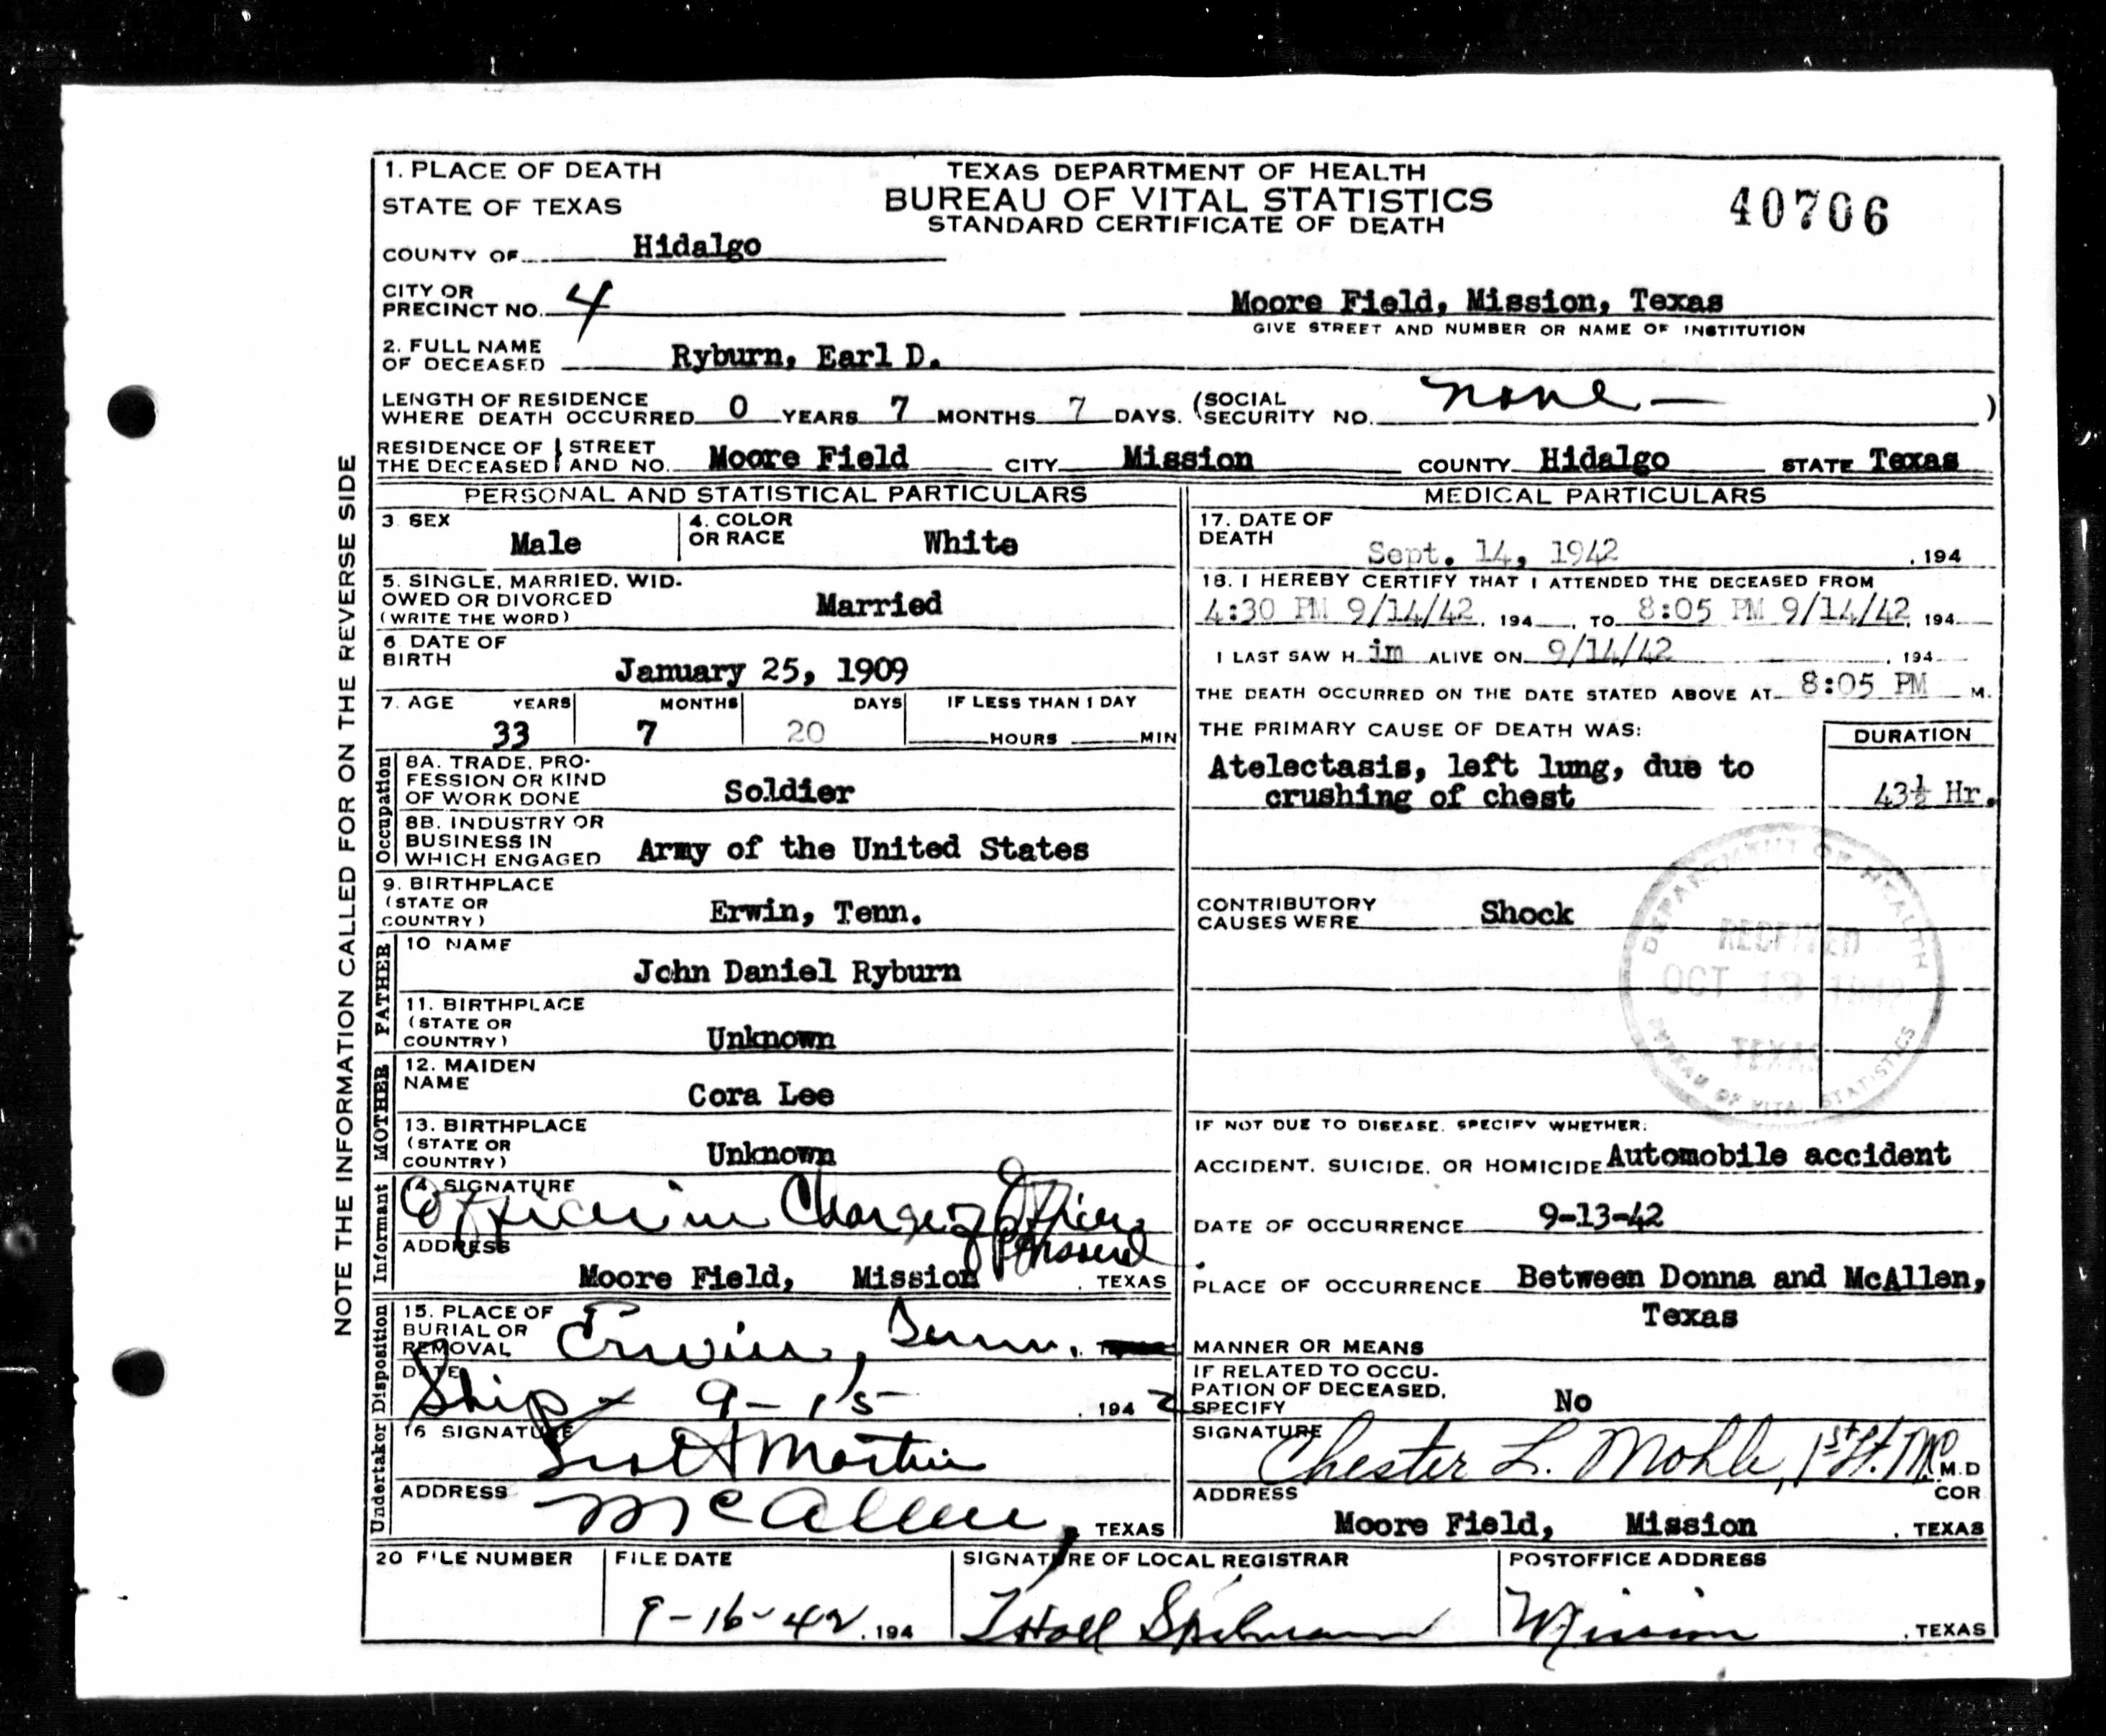 1. PLACE OF DEATH
STATE OF TEXAS
COUNTY OF Hidalgo
TEXAS DEPARTMENT OF HEALTH
BUREAU OF VITAL STATISTICS
STANDARD CERTIFICATE OF DEATH
40706
CITY OR
PRECINCT NO. 4
Moore Field, Mission, Texas
GIVE STREET AND NUMBER OR NAME OF INSTITUTION
2. FULL NAME
OF DECEASED Ryburn, Earl D.
LENGTH OF RESIDENCE
WHERE DEATH OCCURRED 0 YEARS 7 MONTHS 7 DAYS. (SOCIAL
SECURITY NO. none - )
RESIDENCE OF STREET
THE DECEASED AND NO. Moore Field CITY Mission COUNTY Hidalgo STATE Texas
NOTE THE INFORMATION CALLED FOR ON THE REVERSE SIDE
PERSONAL AND STATISTICAL PARTICULARS
3. SEX
Male
4. COLOR
OR RACE White
5. SINGLE, MARRIED, WID-
OWED OR DIVORCED
(WRITE THE WORD) Married
6 DATE OF
BIRTH January 25, 1909
7. AGE YEARS MONTHS DAYS IF LESS THAN 1 DAY
33 7 20 HOURS MIN
Occupation
8A. TRADE, PRO-
FESSION OR KIND
OF WORK DONE Soldier
8B. INDUSTRY OR
BUSINESS IN
WHICH ENGAGED Army of the United States
9. BIRTHPLACE
(STATE OR
COUNTRY) Erwin, Tenn.
FATHER
10 NAME
John Daniel Ryburn
11. BIRTHPLACE
(STATE OR
COUNTRY) Unknown
MOTHER
12. MAIDEN
NAME Cora Lee
13. BIRTHPLACE
(STATE OR
COUNTRY) Unknown
Informant
14. SIGNATURE
Officer in Charge, Officers
Personnel
ADDRESS
Moore Field, Mission . TEXAS
Disposition
15. PLACE OF
BURIAL OR
REMOVAL Erwin, Tenn.
DATE
Ship - 9-15 , 1942
Undertaker
16 SIGNATURE
Martin
ADDRESS McAllen, TEXAS
MEDICAL PARTICULARS
17. DATE OF
DEATH Sept. 14, 1942 , 194
18. I HEREBY CERTIFY THAT I ATTENDED THE DECEASED FROM
4:30 PM 9/14/42, 194 , TO 8:05 PM 9/14/42, 194
I LAST SAW H im ALIVE ON 9/14/42 , 194
THE DEATH OCCURRED ON THE DATE STATED ABOVE AT 8:05 PM M.
THE PRIMARY CAUSE OF DEATH WAS: DURATION
Atelectasis, left lung, due to
crushing of chest 43½ Hr.
CONTRIBUTORY
CAUSES WERE Shock
DEPARTMENT OF HEALTH
RECEIVED
OCT 13
TEXAS
BUREAU OF VITAL STATISTICS
IF NOT DUE TO DISEASE, SPECIFY WHETHER:
ACCIDENT, SUICIDE, OR HOMICIDE Automobile accident
DATE OF OCCURRENCE 9-13-42
PLACE OF OCCURRENCE Between Donna and McAllen,
Texas
MANNER OR MEANS
IF RELATED TO OCCU-
PATION OF DECEASED,
SPECIFY No
SIGNATURE Chester L. Mohle, 1st Lt. MC M.D
COR
ADDRESS
Moore Field, Mission . TEXAS
20 FILE NUMBER
FILE DATE
9-16-42, 194
SIGNATURE OF LOCAL REGISTRAR
Spilmann
POSTOFFICE ADDRESS
Mission . TEXAS